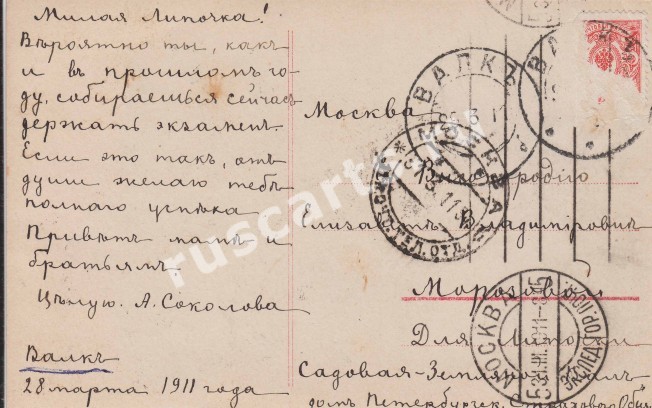 Милая Липочка!
Вѣроятно ты, какъ
и въ прошломъ го-
ду, собираешься сейчасъ
держать экзамен.
Если это такъ, отъ
души желаю тебѣ
полнаго успѣха
Привѣтъ мамѣ и
братьямъ.
Цѣлую. А. Соколова
Валкъ
28 марта 1911 года
Москва
Елизаветѣ Владимировнѣ
Морозовой
Для Липочки
Садовая-Земляной валъ
домъ Петербургск. Страховаго Общ
ВАЛКЪ
МОСКВА
МОСКВА
ruscarts.ru